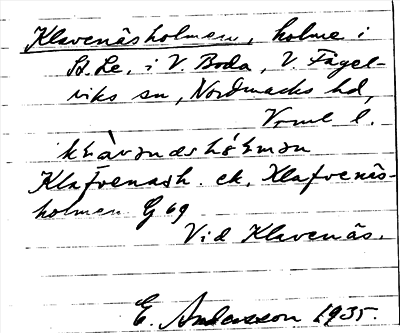 Klavenäsholmen, holme i
St. Le, i V. Boda, V. Fågel-
viks sn, Nordmarks hd,
Vrml l.
Klafvenäsh. ek. Klafvenäs-
holmen G 69
Vid Klavenäs.
E. Andersson 1935.